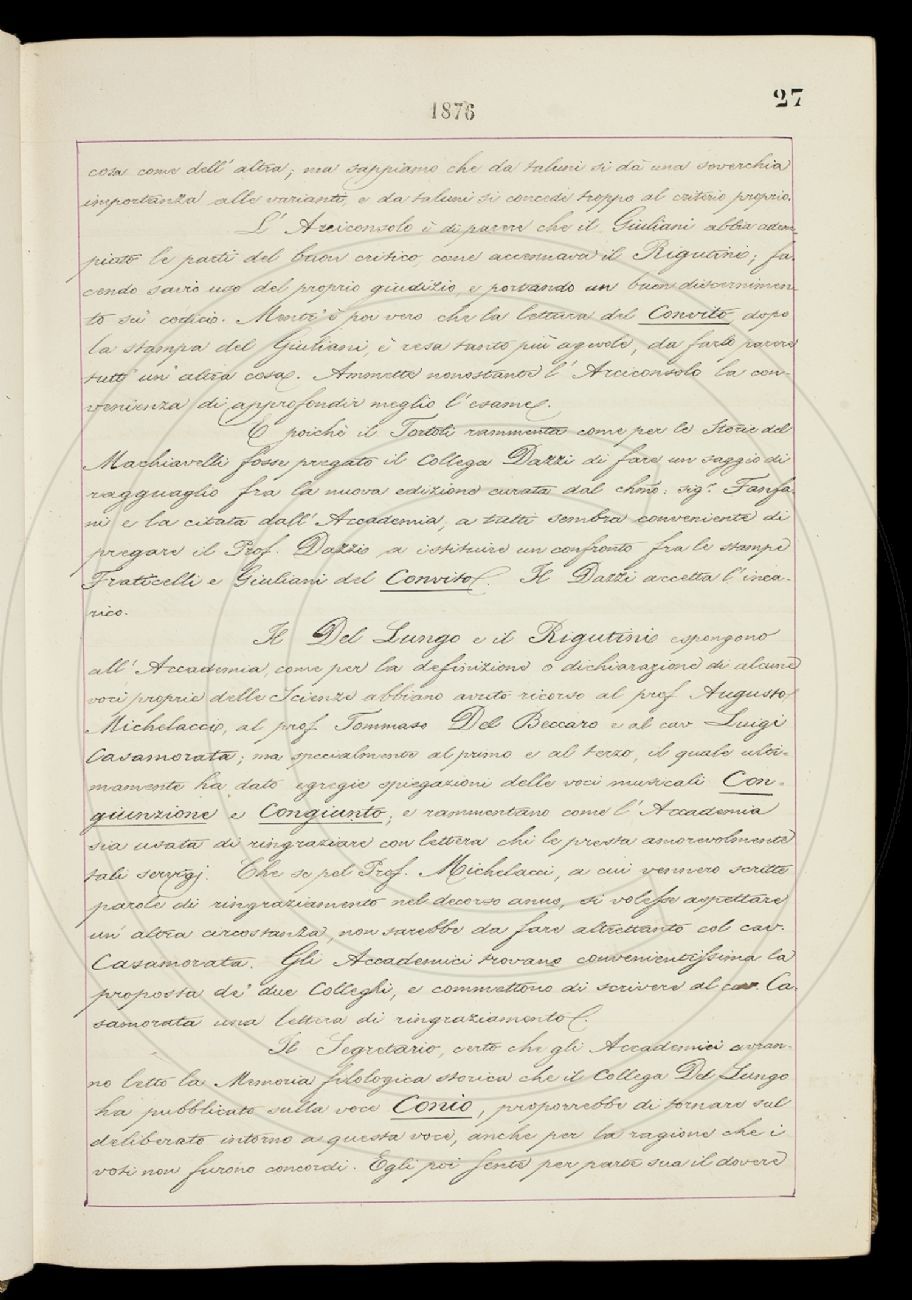 1876
27
cosa come dell'altra; ma sappiamo che da taluni si dà una soverchia
importanza alle varianti, e da taluni si concede troppo al criterio proprio.
L'Arciconsolo è di parere che il Giuliani abbia adem-
piuto le parti del buon critico, come accennava il Rigutini; fa-
cendo savio uso del proprio giudizio, e portando un buon discernimen-
to sui codici. Mente è poi vero che la lettura del Convito, dopo
la stampa del Giuliani, è resa tanto più agevole, da farlo parere
tutt'un'altra cosa. Ammette nonostante l'Arciconsolo la con-
venienza di approfondir meglio l'esame.
E poichè il Tortoli rammenta come per le Storie del
Machiavelli fosse pregato il Collega Dazzi di fare un saggio di
ragguaglio fra la nuova edizione curata dal chmo: sigr. Fanfa-
ni e la citata dall'Accademia, a tutti sembra conveniente di
pregare il Prof. Dazzi a istituire un confronto fra le stampe
Fraticelli e Giuliani del Convito. Il Dazzi accetta l'inca-
rico.
Il Del Lungo e il Rigutini espongono
all'Accademia, come per la definizione o dichiarazione di alcune
voci proprie delle Scienze abbiano avuto ricorso al prof. Augusto
Michelacci, al prof. Tommaso Del Beccaro e al cav. Luigi
Casamorata; ma specialmente al primo e al terzo, il quale ulti-
mamente ha dato egregie spiegazioni delle voci musicali Con-
giunzione e Congiunto; e rammentano come l'Accademia
sia usata di ringraziare con lettera chi le presta amorevolmente
tali servigj. Che se pel Prof. Michelacci, a cui vennero scritte
parole di ringraziamento nel decorso anno, si volesse aspettare
un'altra circostanza, non sarebbe da fare altrettanto col cav.
Casamorata. Gli Accademici trovano convenientissima la
proposta de' due Colleghi, e commettono di scrivere al cav. Ca-
samorata una lettera di ringraziamento.
Il Segretario, certo che gli Accademici avran-
no letto la Memoria filologica storica che il Collega Del Lungo
ha pubblicato sulla voce Conio, proporrebbe di tornare sul
deliberato intorno a questa voce, anche per la ragione che i
voti non furono concordi. Egli poi sente per parte sua il dovere